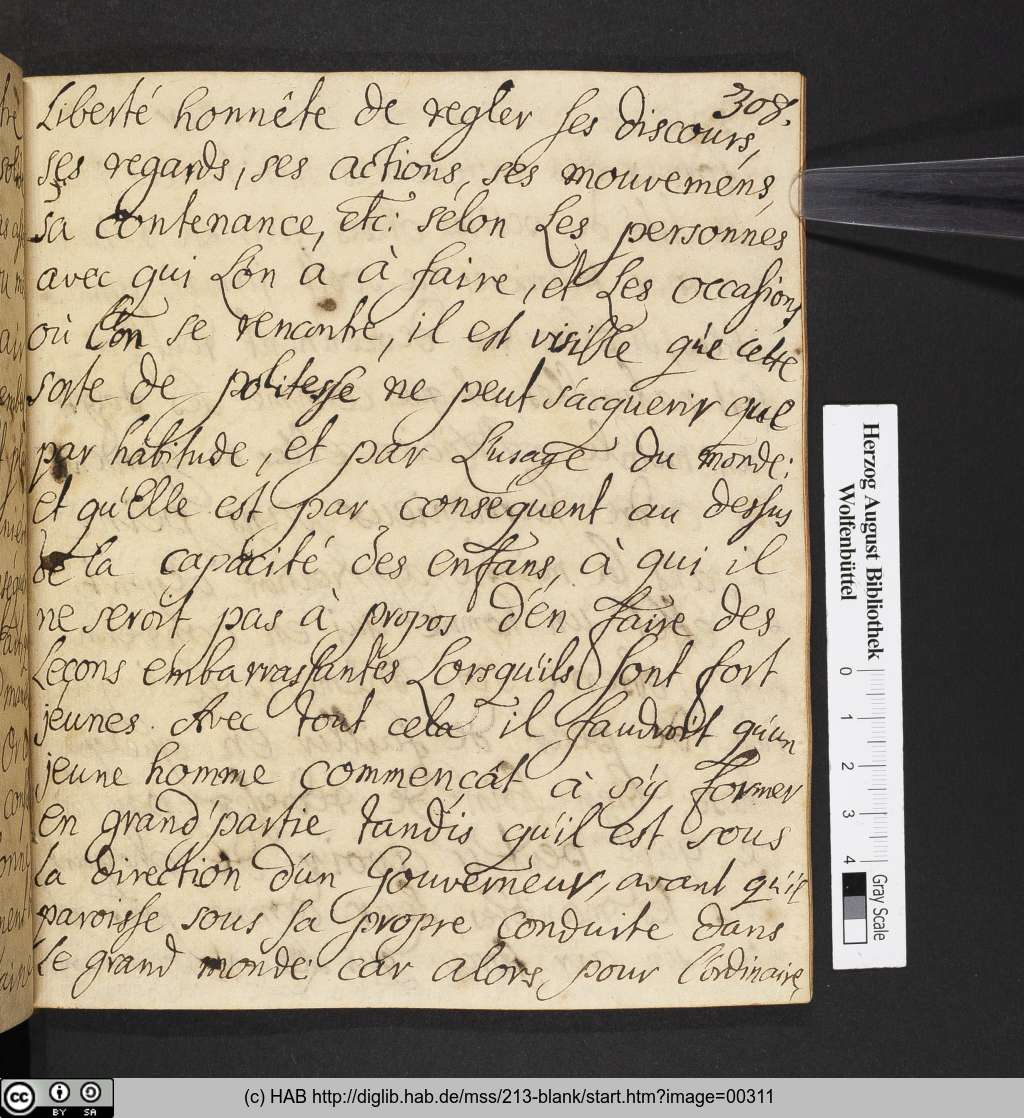 308.
Liberté honnête de regler ses discours,
ses regards, ses actions, ses mouvemens,
sa contenance, etc: selon Les personnes
avec qui L'on a à faire, et Les occasions
où L'on se rencontre, il est visible que cette
sorte de politesse ne peut s'acquerir que
par habitude, et par L'usage du monde:
et qu'Elle est par consequent au dessus
de la capacité des enfans, à qui il
ne seroit pas à propos d'en faire des
Leçons embarrassantes Lorsqu'ils sont fort
jeunes. Avec tout cela il faudroit qu'un
jeune homme commençât à s'y former
en grand' partie tandis qu'il est sous
la direction d'un Gouverneur, avant qu'il
paroisse sous sa propre conduite dans
Le grand monde: car alors, pour l'ordinaire,
Herzog August Bibliothek
Wolfenbüttel
0 1 2 3 4
Gray Scale
cc BY SA
(c) HAB http://diglib.hab.de/mss/213-blank/start.htm?image=00311